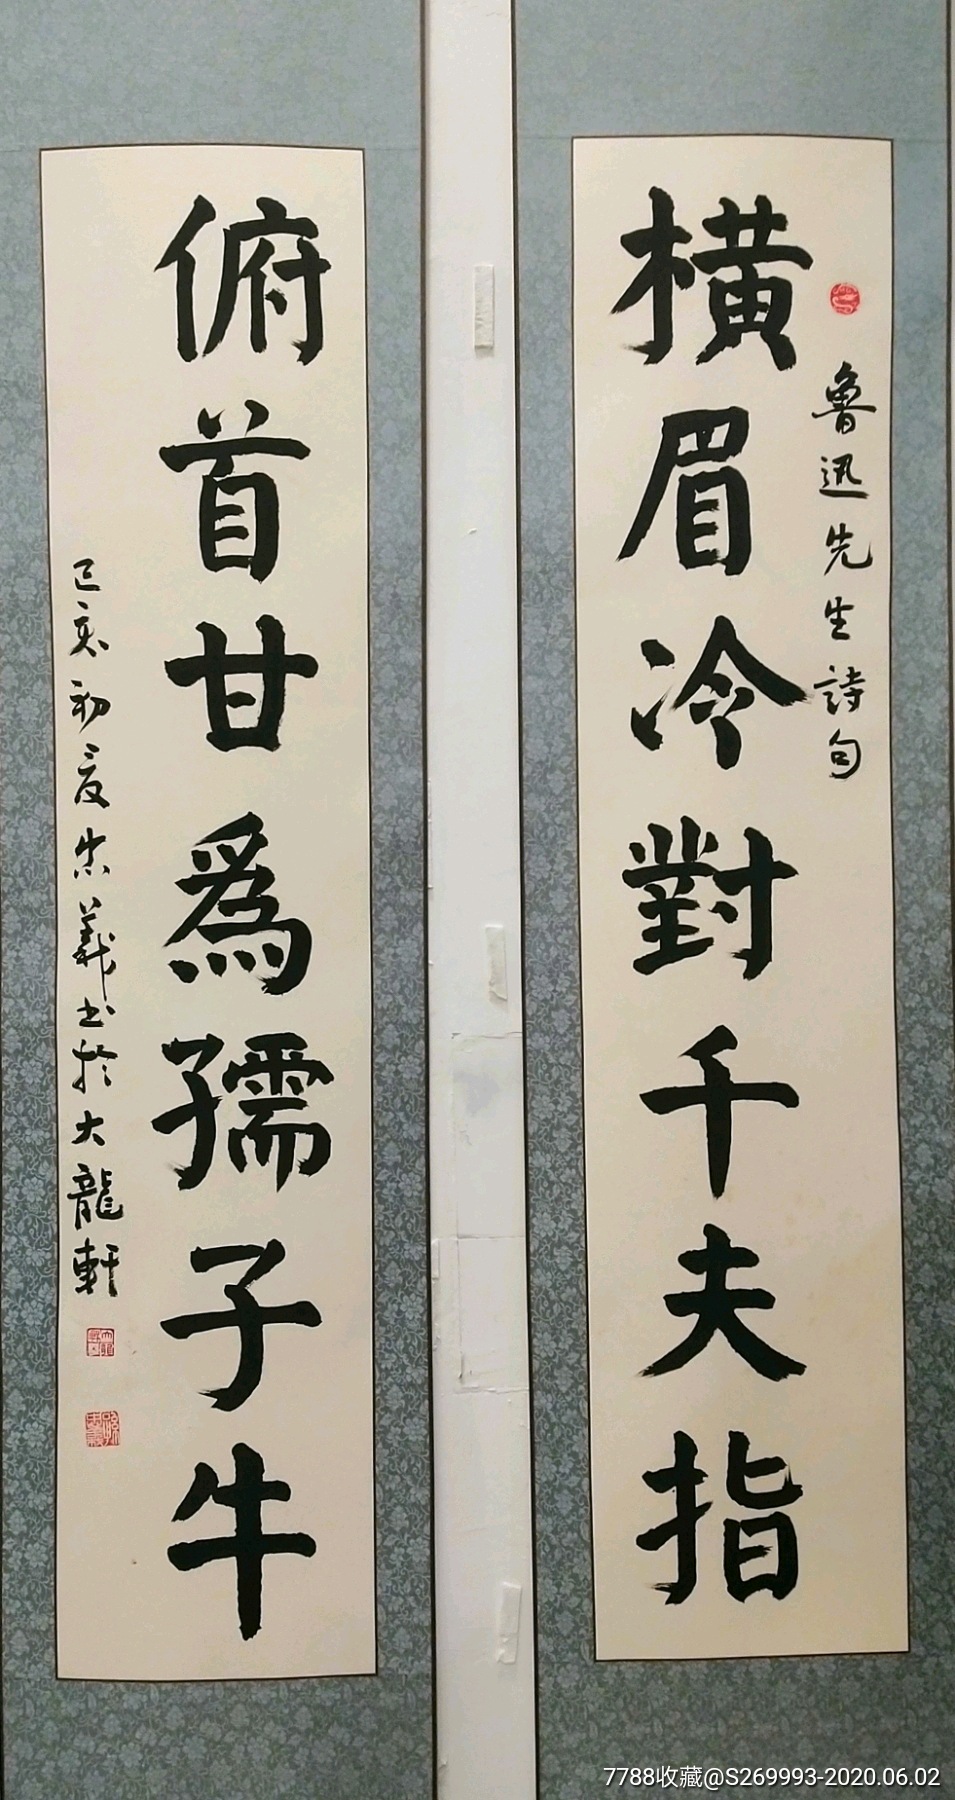 橫眉冷對千夫指
魯迅先生詩句
俯首甘為孺子牛
己亥初夏忠義书於大龍軒
7788收藏@S269993-2020.06.02